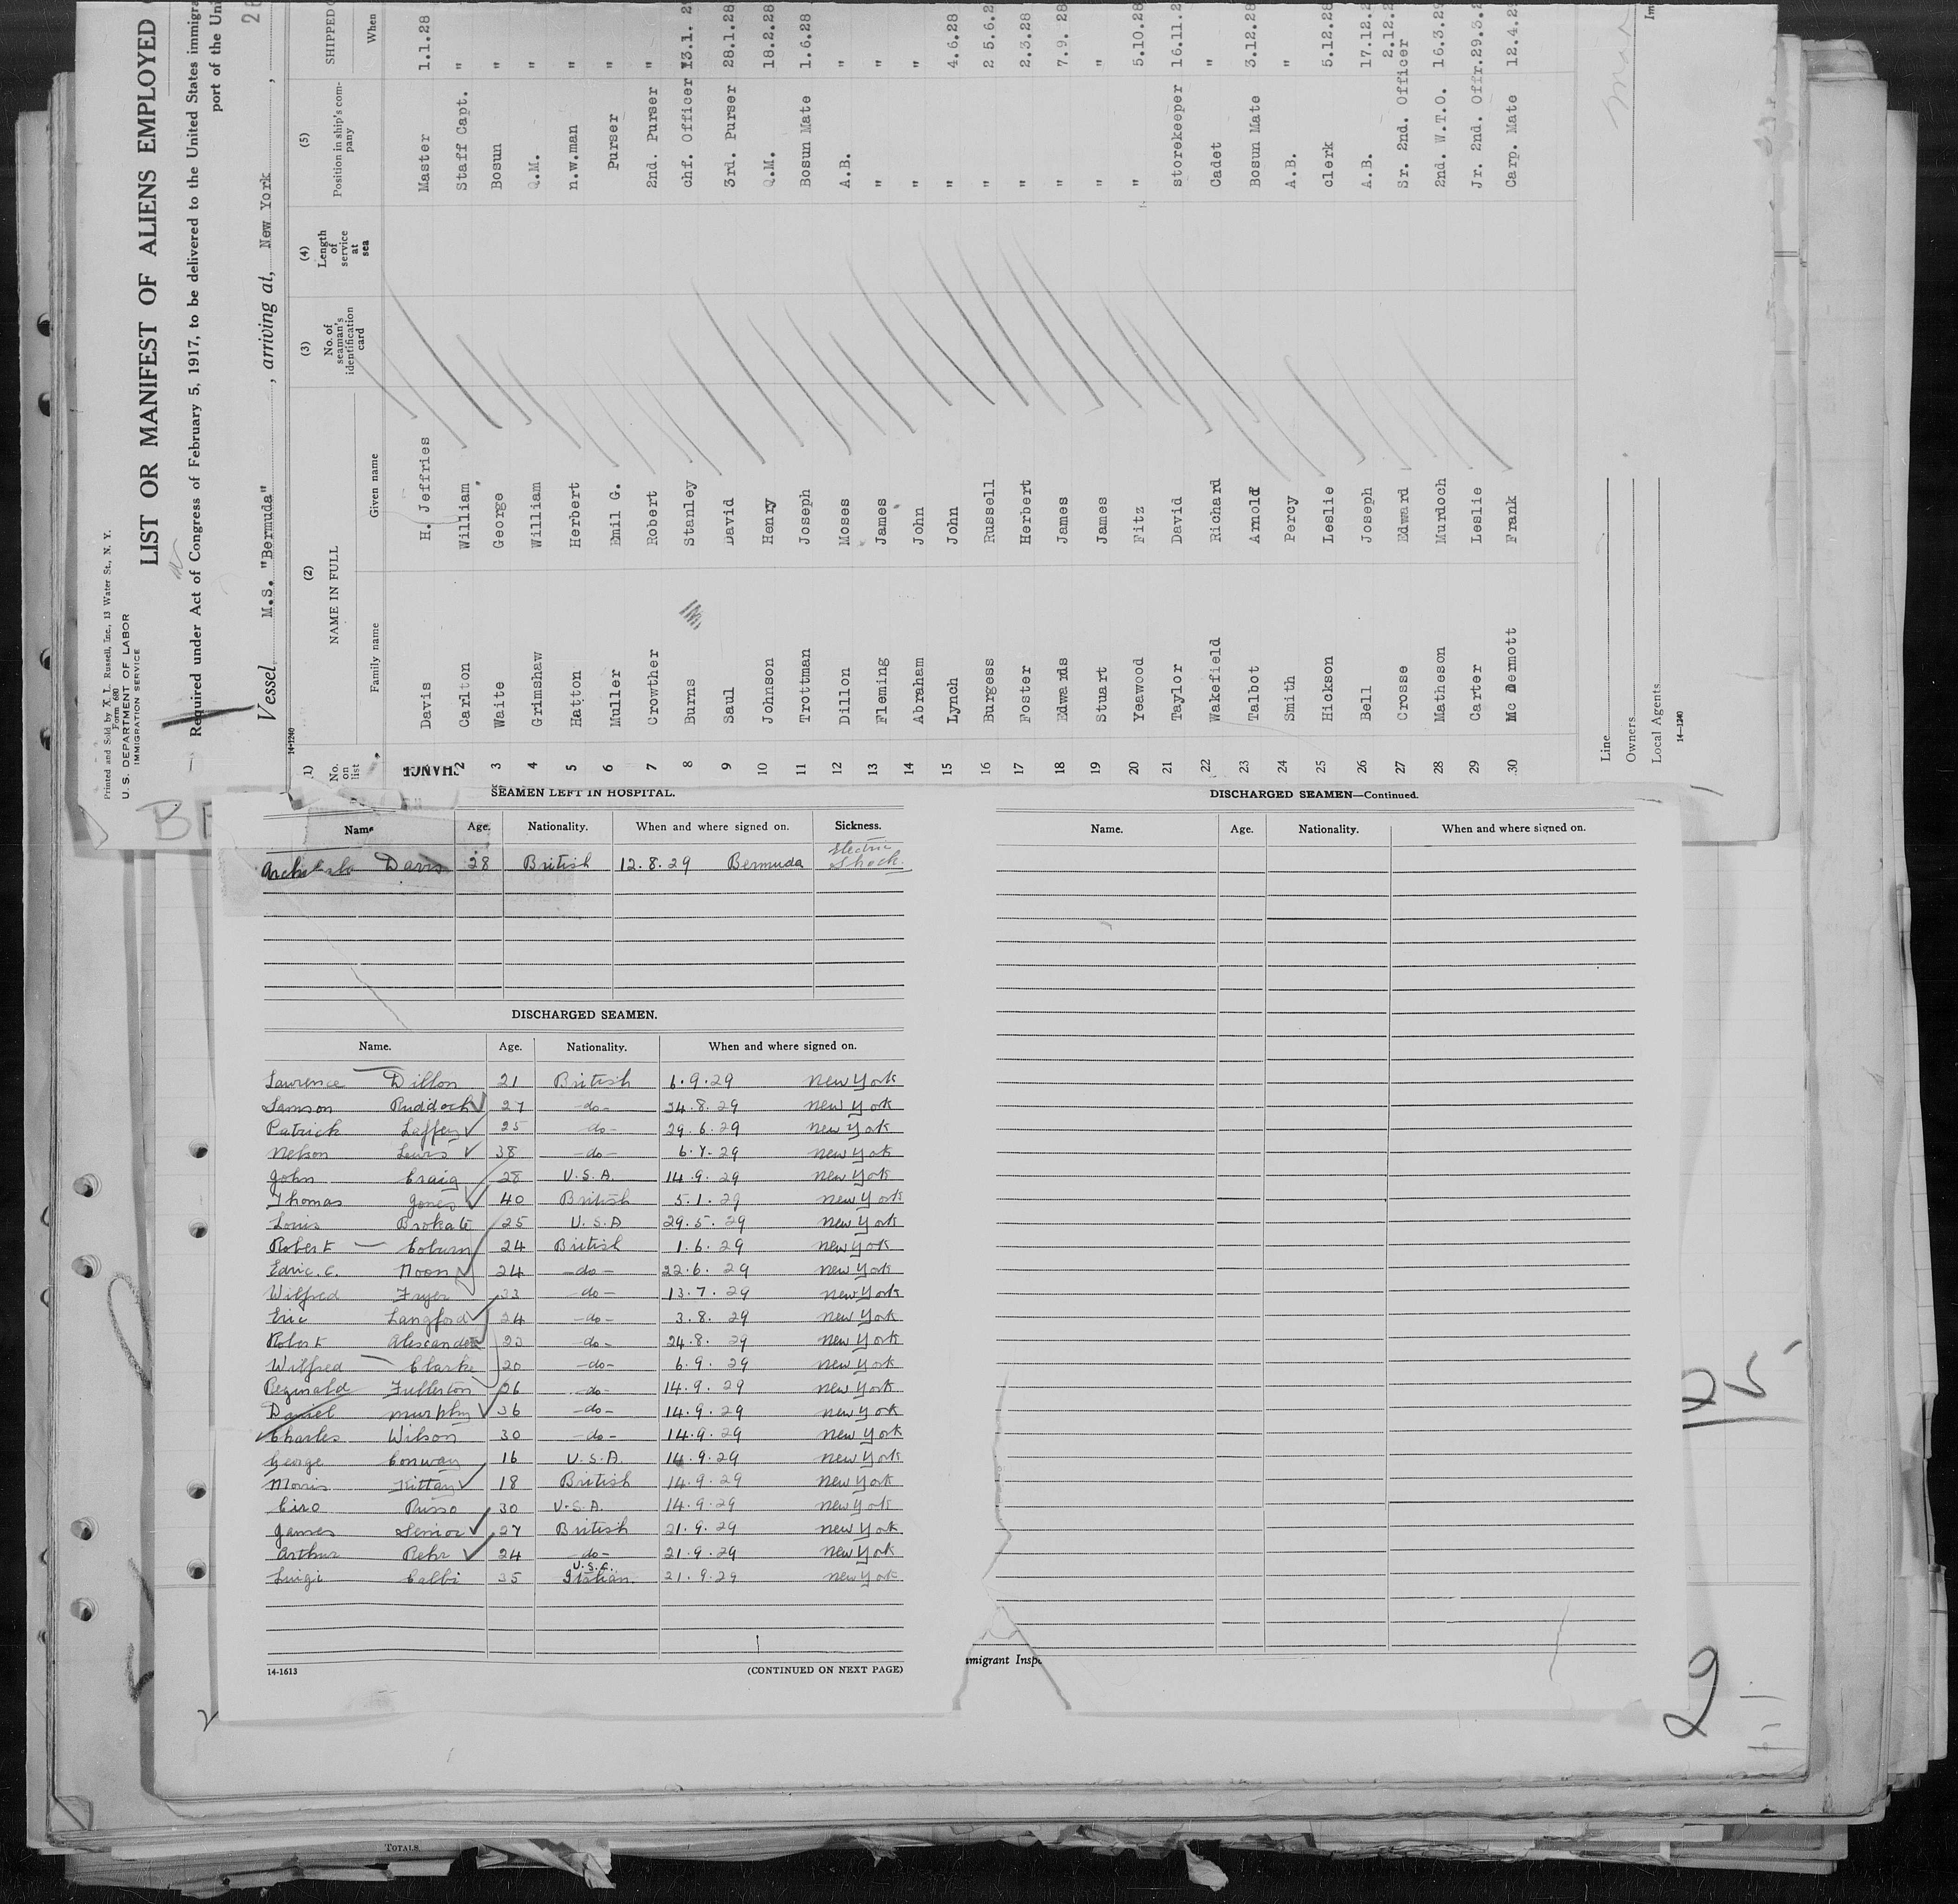 Printed and Sold by X. L. Russell, Inc., 13 Water St., N. Y.
Form 680
U. S. DEPARTMENT OF LABOR
IMMIGRATION SERVICE
LIST OR MANIFEST OF ALIENS EMPLOYED
Required under Act of Congress of February 5, 1917, to be delivered to the United States immigra
port of the Uni
Vessel M.S. "Bermuda", arriving at, New York, 28
14-1240
(1) (2) (3) (4) (5) SHIPPED
No. on list NAME IN FULL No. of seaman's identification card Length of service at sea Position in ship's company When
Family name Given name
Davis H. Jeffries Master 1.1.28
2 Carlton William Staff Capt. "
3 Waite George Bosun "
4 Grimshaw William Q.M. "
5 Hatton Herbert n.w.man "
6 Muller Emil G. Purser "
7 Crowther Robert 2nd. Purser "
8 Burns Stanley chf. Officer 13.1. 2
9 Saul David 3rd. Purser 28.1.28
10 Johnson Henry Q.M. 18.2.28
11 Trottman Joseph Bosun Mate 1.6.28
12 Dillon Moses A.B. "
13 Fleming James " "
14 Abraham John " "
15 Lynch John " 4.6.28
16 Burgess Russell " 2 5.6.2
17 Foster Herbert " 2.3.28
18 Edwards James " 7.9. 28
19 Stuart James " "
20 Yeawood Fitz " 5.10.28
21 Taylor David storekeeper 16.11.2
22 Wakefield Richard Cadet "
23 Talbot Arnold Bosun Mate 3.12.28
24 Smith Percy A.B. "
25 Hickson Leslie clerk 5.12.28
26 Bell Joseph A.B. 17.12.2
27 Crosse Edward Sr. 2nd. Officer 2.12.2
28 Matheson Murdoch 2nd. W.T.O. 16.3.29
29 Carter Leslie Jr. 2nd. Offr. 29.3.2
30 Mc Dermott Frank Carp. Mate 12.4.2
Line
Owners
Local Agents
14-1240
Im
SEAMEN LEFT IN HOSPITAL.
Name Age. Nationality. When and where signed on. Sickness.
Davis 28 British 12.8.29 Bermuda Electric Shock.
DISCHARGED SEAMEN.
Name. Age. Nationality. When and where signed on.
Lawrence Dillon 21 British 6.9.29 New York
Samson Ruddock 27 -do- 24.8.29 New York
Patrick Laffey 25 -do- 29.6.29 New York
Nelson Lewis 38 -do- 6.7.29 New York
John Craig 28 U.S.A. 14.9.29 New York
Thomas Jones 40 British 5.1.29 New York
Louis Brokate 25 U.S.A 29.5.29 New York
Robert Coburn 24 British 1.6.29 New York
Edric. C. Noon 24 -do- 22.6.29 New York
Wilfred Fryer 33 -do- 13.7.29 New York
Eric Langford 24 -do- 3.8.29 New York
Robert Alexander 23 -do- 24.8.29 New York
Wilfred Clarke 20 -do- 6.9.29 New York
Reginald Fullerton 26 -do- 14.9.29 New York
Daniel Murphy 36 -do- 14.9.29 New York
Charles Wilson 30 -do- 14.9.29 New York
George Conway 16 U.S.A. 14.9.29 New York
Morris Kittay 18 British 14.9.29 New York
Ciro Russo 30 U.S.A. 14.9.29 New York
James Senior 27 British 21.9.29 New York
Arthur Rehr 24 -do- 21.9.29 New York
Luigi Calbi 35 Italian. 21.9.29 New York
14-1613 (CONTINUED ON NEXT PAGE)
DISCHARGED SEAMEN—Continued.
Name. Age. Nationality. When and where signed on.
migrant Inspe
2
TOTALS